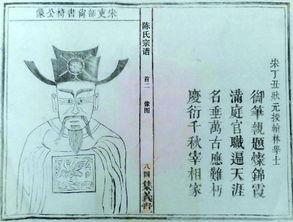 宋吏部尚書椅公像
陈氏宗谱
首二
像图
八四
宋丁丑狀元授翰林學士
御筆親題燦錦霞
滿庭官職遍天涯
名垂萬古應難朽
慶衍千秋宰相家